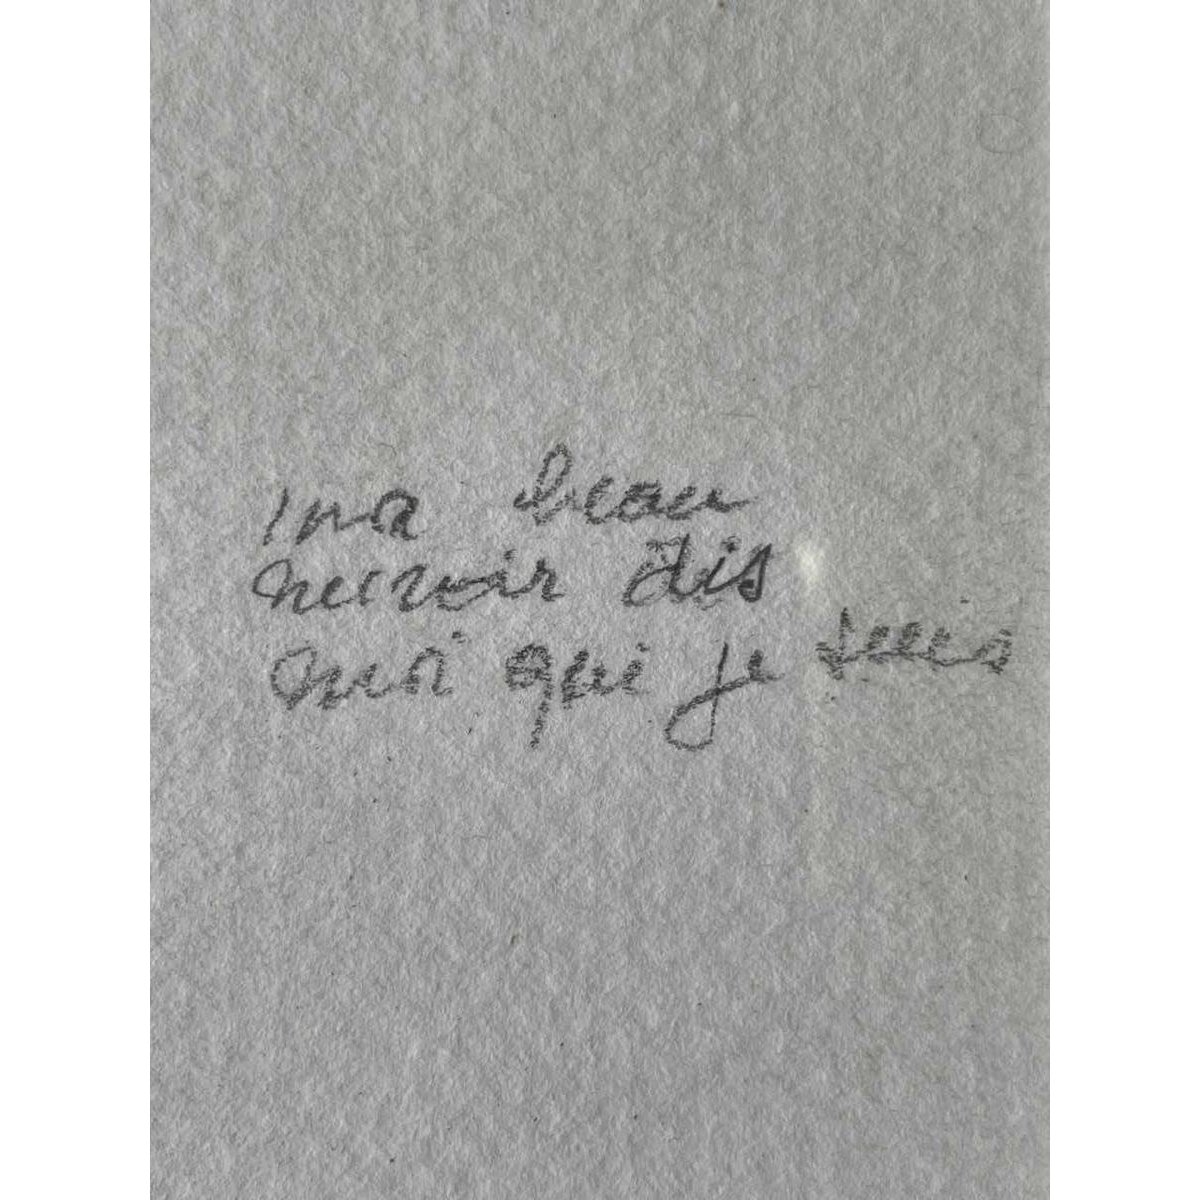 ma beau
mirroir dis
moi qui je suis